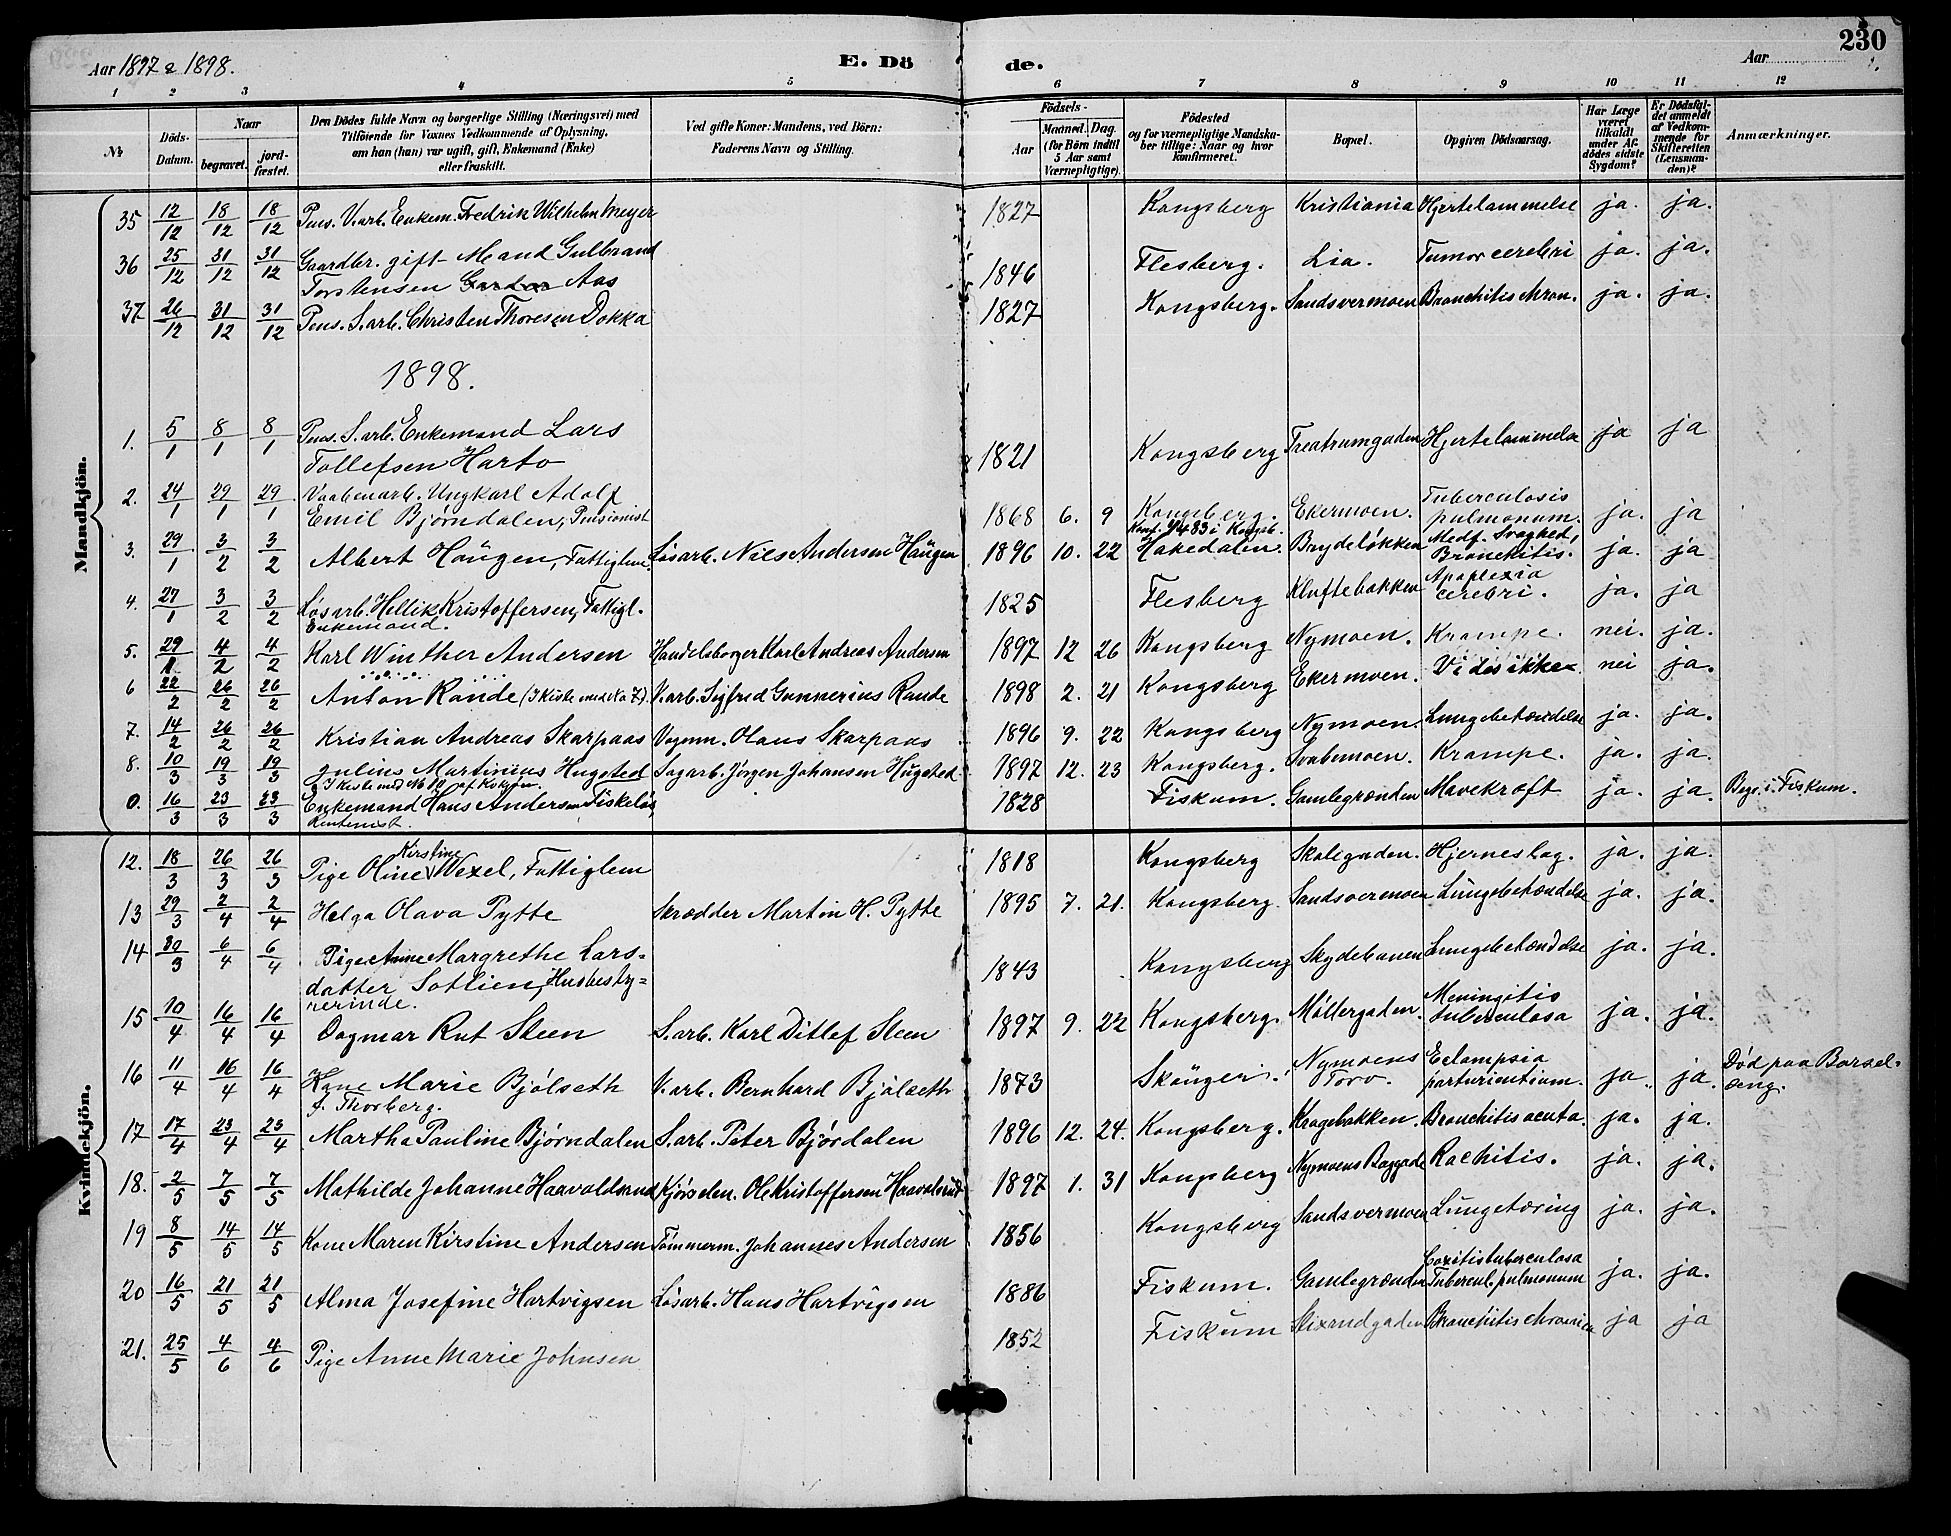 Aar 1897 & 1898.
E. Dö
de.
Aar
230
1 2 3 4 5 6 7 8 9 10 11 12
№
Döds-Datum.
Naar
begravet.
jord-fæstet.
Den Dödes fulde Navn og borgerlige Stilling (Næringsvei) med
Tilföiende for Voxnes Vedkommende af Oplysning,
om han (hun) var ugift, gift, Enkemand (Enke)
eller fraskilt.
Ved gifte Koner: Mandens, ved Börn:
Faderens Navn og Stilling.
Födsels-
Aar
Maaned. Dag.
(for Börn indtil
5 Aar samt
Værnepligtige).
Födested
og for værnepligtige Mandska-
ber tillige: Naar og hvor
konfirmeret.
Bopæl.
Opgiven Dödsaarsag.
Har Læge
været
tilkaldt
under Af-
dödes sidste
Sygdom?
Er Dödsfal-
det anmeldt
af Vedkom-
mende for
Skifteretten
(Lensman-
den)?
Anmærkninger.
Mandkjön.
35 12/12 18/12 18/12 Pens. V.arb. Enkem. Fredrik Wilhelm Meyer 1827 Kongsberg Kristiania Hjertelammelse ja. ja.
36 25/12 31/12 31/12 Gaardbr. gift Mand Gulbrand
Torstensen Aas 1846 Flesberg. Lia. Tumor cerebri ja. ja.
37 26/12 31/12 31/12 Pens. S.arb. Christen Thoresen Dokka 1827 Kongsberg. Sandsvermoen Bronchitis chron. ja. ja.
1898.
1. 5/1 8/1 8/1 Pens. S.arb. Enkemand Lars
Tollefsen Harto 1821 Kongsberg Treatrumgaden Hjertelammelse ja ja
2. 24/1 29/1 29/1 Vaabenarb. Ungkarl Adolf
Emil Bjørndalen, Pensionist 1868 6. 9 Kongsberg. Ekermoen. Tuberculosis
pulmonum. ja. ja
Konf. 4/483 i Kongsb.
3. 29/1 3/2 3/2 Albert Haugen, Fattiglem. Løsarb. Nils Andersen Haugen 1896 10. 22 Hakedalen. Brydeløkken Medf. Svaghed,
Bronchitis. ja. ja
4. 27/1 3/2 3/2 Løsarb. Hellik Kristoffersen, Fattigl.
Enkemand. 1825 Flesberg Kluftebakken Apoplexia
cerebri. ja. ja
5. 29/1 4/2 4/2 Karl Winther Andersen Handelsborger Karl Andreas Andersen 1897 12 26 Kongsberg Nymoen. Krampe. nei. ja.
6 22/2 26/2 26/2 Anton Rande (I Kiste med No 7). V.arb. Sigfred Gunnerius Rande 1898 2. 21 Kongsberg Ekermoen. Vides ikke nei ja.
7. 14/2 26/2 26/2 Kristian Andreas Skarpaas Vognm. Olaus Skarpaas 1896 9. 22 Kongsberg Nymoen. Lungebetændelse ja. ja.
8. 10/3 19/3 19/3 Julius Martinius Hugsted Sagarb. Jørgen Johansen Hugsted 1897 12. 23 Kongsberg. Svabemoen. Krampe. ja. ja.
I Kiste med No 10 af Kvkjøn.
0. 16/3 23/3 23/3 Enkemand Hans Andersen Fiskeløs,
Rentenist. 1828 Fiskum. Gamlegrænden Mavekræft ja. ja. Begr. i Fiskum.
Kvindekjön.
12. 18/3 26/3 26/3 Pige Oline Kirstine Wexel, Fattiglem 1818 Kongsberg Skolegaden. Hjerneslag. ja. ja.
13 29/3 2/4 2/4 Helga Olava Pytte Skrædder Martin H. Pytte 1895 7. 21. Kongsberg. Sandsvermoen Lungebetændelse ja. ja.
14 30/3 6/4 6/4 Pige Anne Margrethe Lars-
datter Sotlien, Husbesty-
rerinde. 1843 Kongsberg Skydebanen Lungebetændelse ja. ja.
15 10/4 16/4 16/4 Dagmar Rut Steen S.arb. Karl Ditlef Steen 1897 9. 22 Kongsberg. Møllergaden. Meningitis
tuberculosa ja. ja.
16 11/4 16/4 16/4 Kone Marie Bjølseth
f. Thorberg. V.arb. Bernhard Bjølseth 1873 Skånger. Nymoens
Torv. Eclampsia
parturientium. ja. ja. Død paa Barsel-
seng.
17 17/4 23/4 23/4 Martha Pauline Bjørndalen S.arb. Peter Bjørdalen 1896 12. 24. Kongsberg. Kragebakken. Bronchitis acuta. ja. ja.
18. 2/5 7/5 7/5 Mathilde Johanne Haavoldsrud Kjørselm. Ole Kristoffersen Haavolsrud 1897 1. 31 Kongsberg Nymoens Baggade Rachitis. ja. ja.
19 8/5 14/5 14/5 Kone Maren Kirstine Andersen Tømmerm. Johannes Andersen 1856 Kongsberg Sandsvermoen Lungetæring ja. ja.
20 16/5 21/5 21/5 Alma Josefine Hartvigsen Løsarb. Hans Hartvigsen 1886 Fiskum. Gamlegrænden Coxitis tuberculosa
Tubercul. pulmonum ja. ja.
21. 25/5 4/6 4/6 Pige Anne Marie Johnsen 1852 Fiskum Bronchitis chronica ja ja